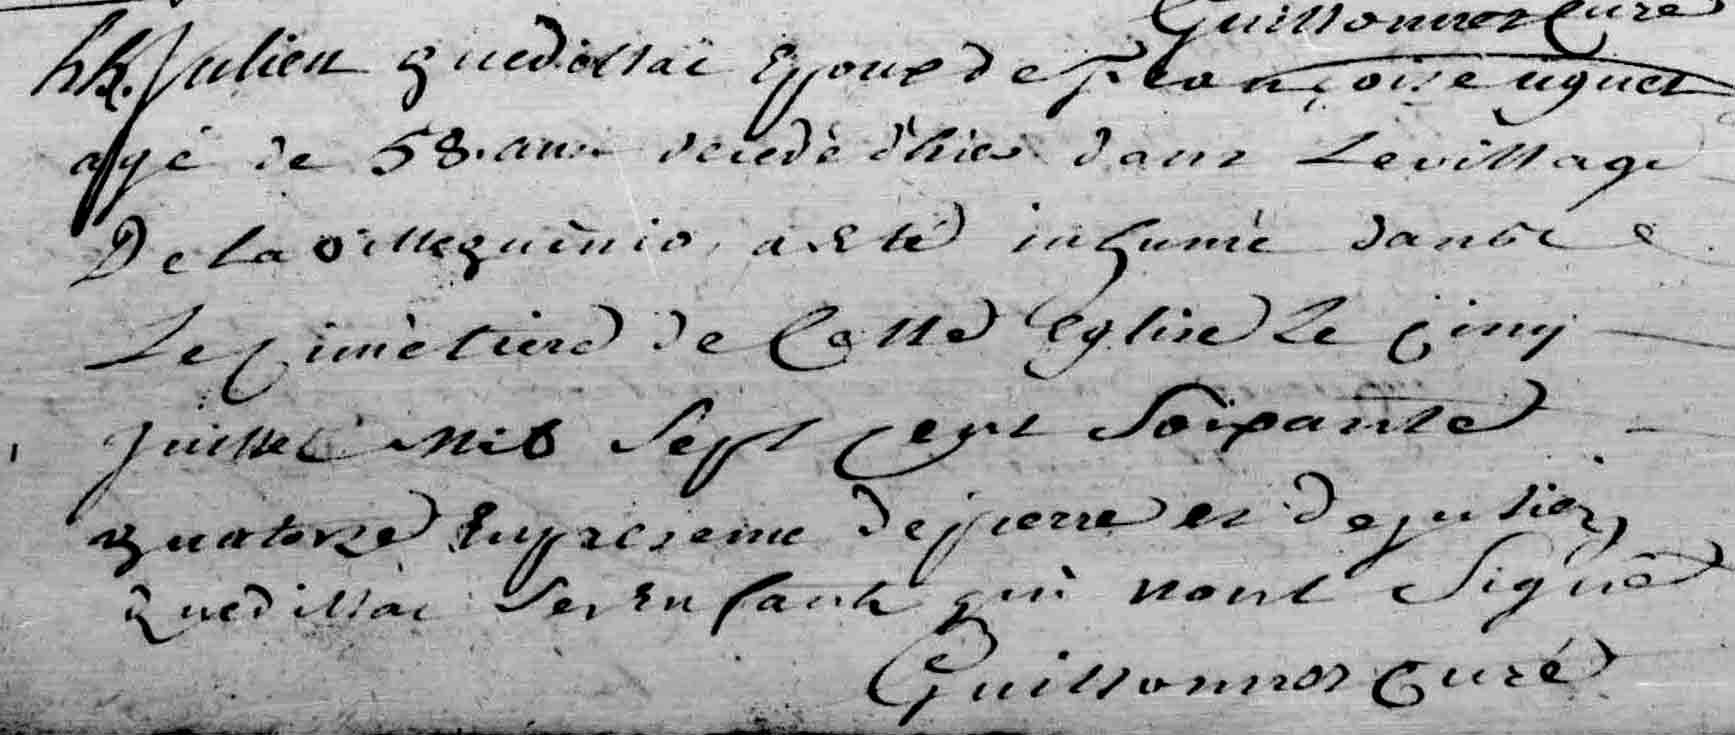 Guillonmer Curé
hh. Julien quedillac Epoux de Françoise uguet
agé de 58. ans decedé d'hier dans Le village
De la villeguinio, a Eté inhumé dans
Le Cimètiere de Cette Eglise Le cinq
juillet Mil Sept Cent Soixante
quatorze En presence de pierre et de julien
quedillac Ses Enfants qui nont Signé
Guillonmer Curé